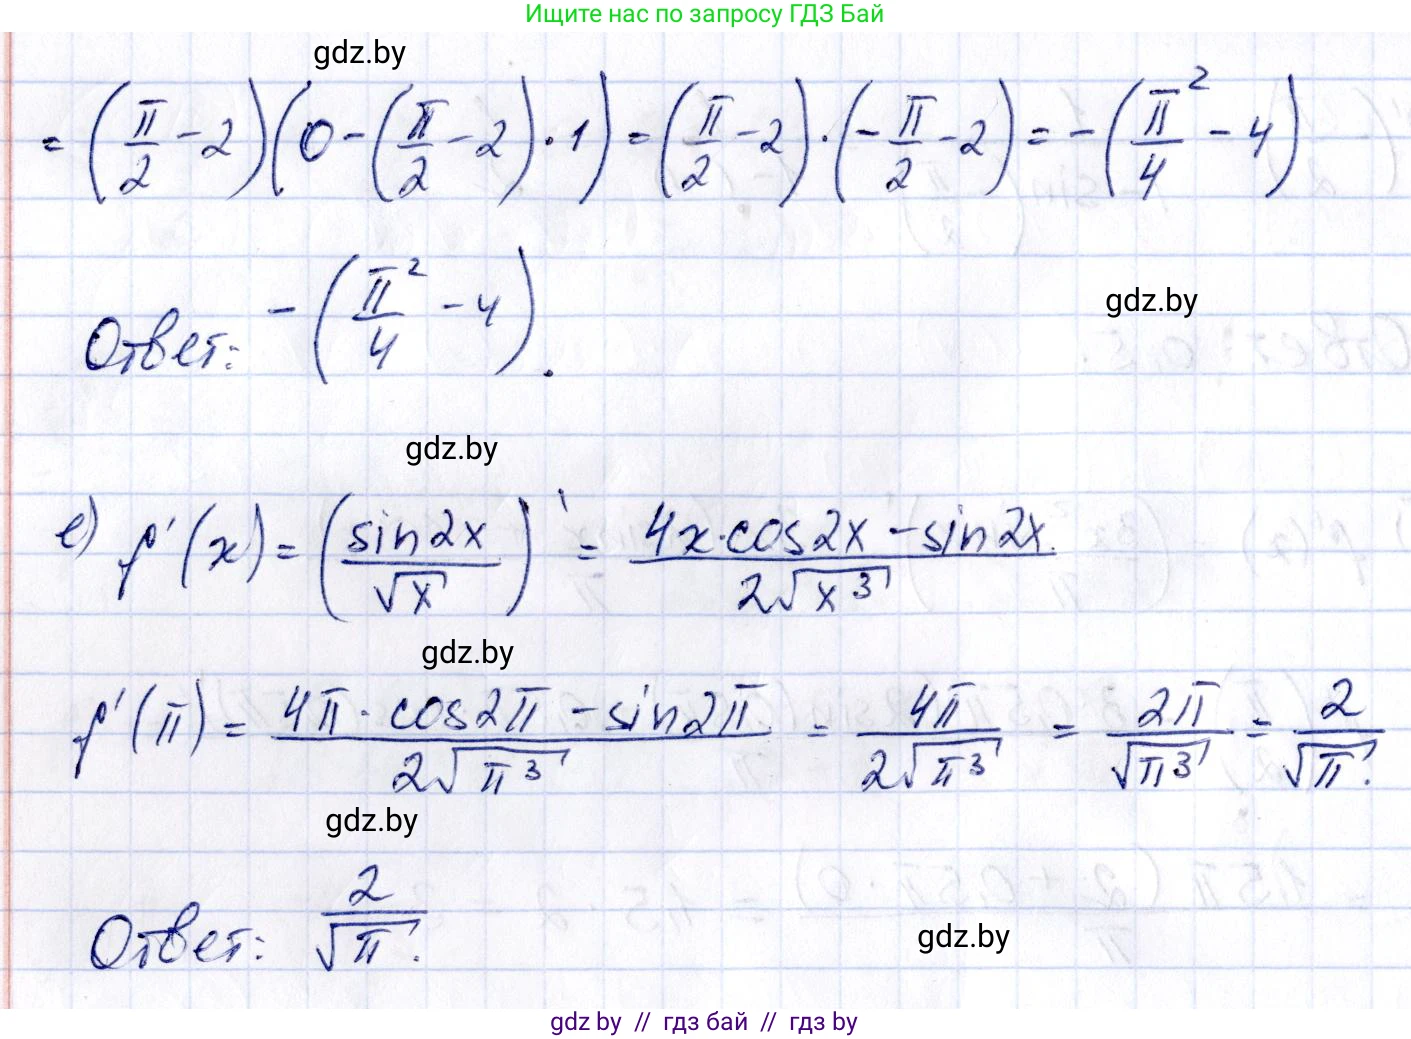 Ищите нас по запросу ГДЗ Бай
gdz.by
= (π/2 - 2)(0 - (π/2 - 2) · 1) = (π/2 - 2) · (- π/2 - 2) = - (π²/4 - 4)
Ответ: - (π²/4 - 4).
gdz.by
gdz.by
е) f'(x) = (sin2x/√x)' = (4x·cos2x - sin2x)/(2√x³)
gdz.by
f'(π) = (4π · cos2π - sin2π)/(2√π³) = 4π/(2√π³) = 2π/√π³ = 2/√π.
gdz.by
Ответ: 2/√π.
gdz.by
gdz by // гдз бай // гдз by